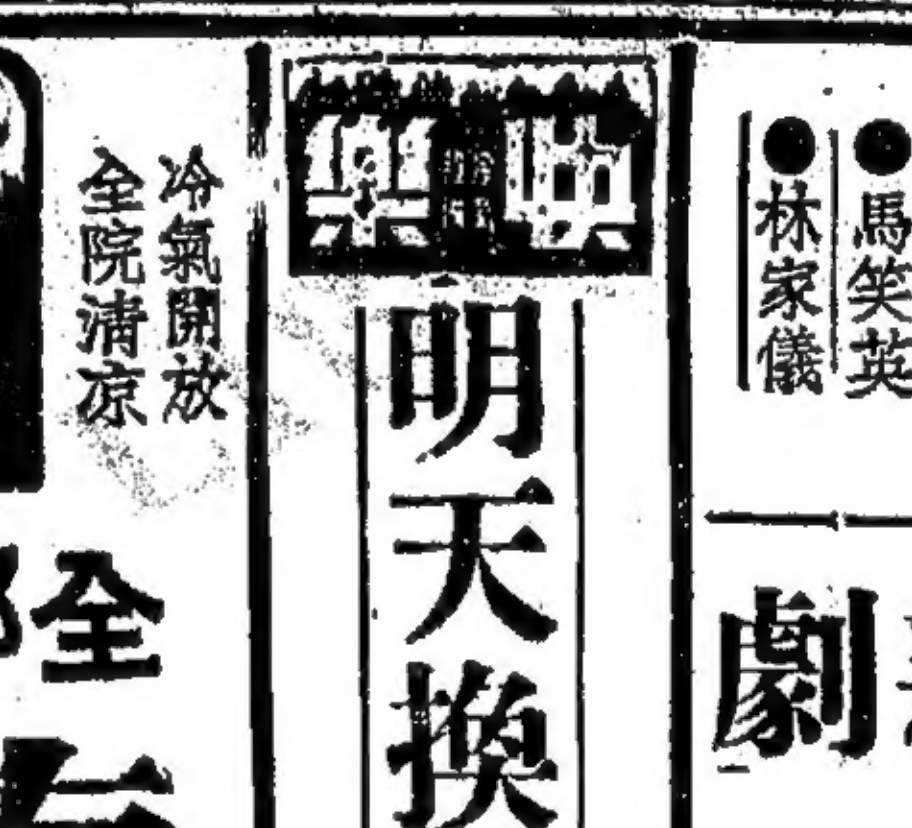 馬笑英
林家儀
劇
明天換
冷氣開放
全院清涼
全